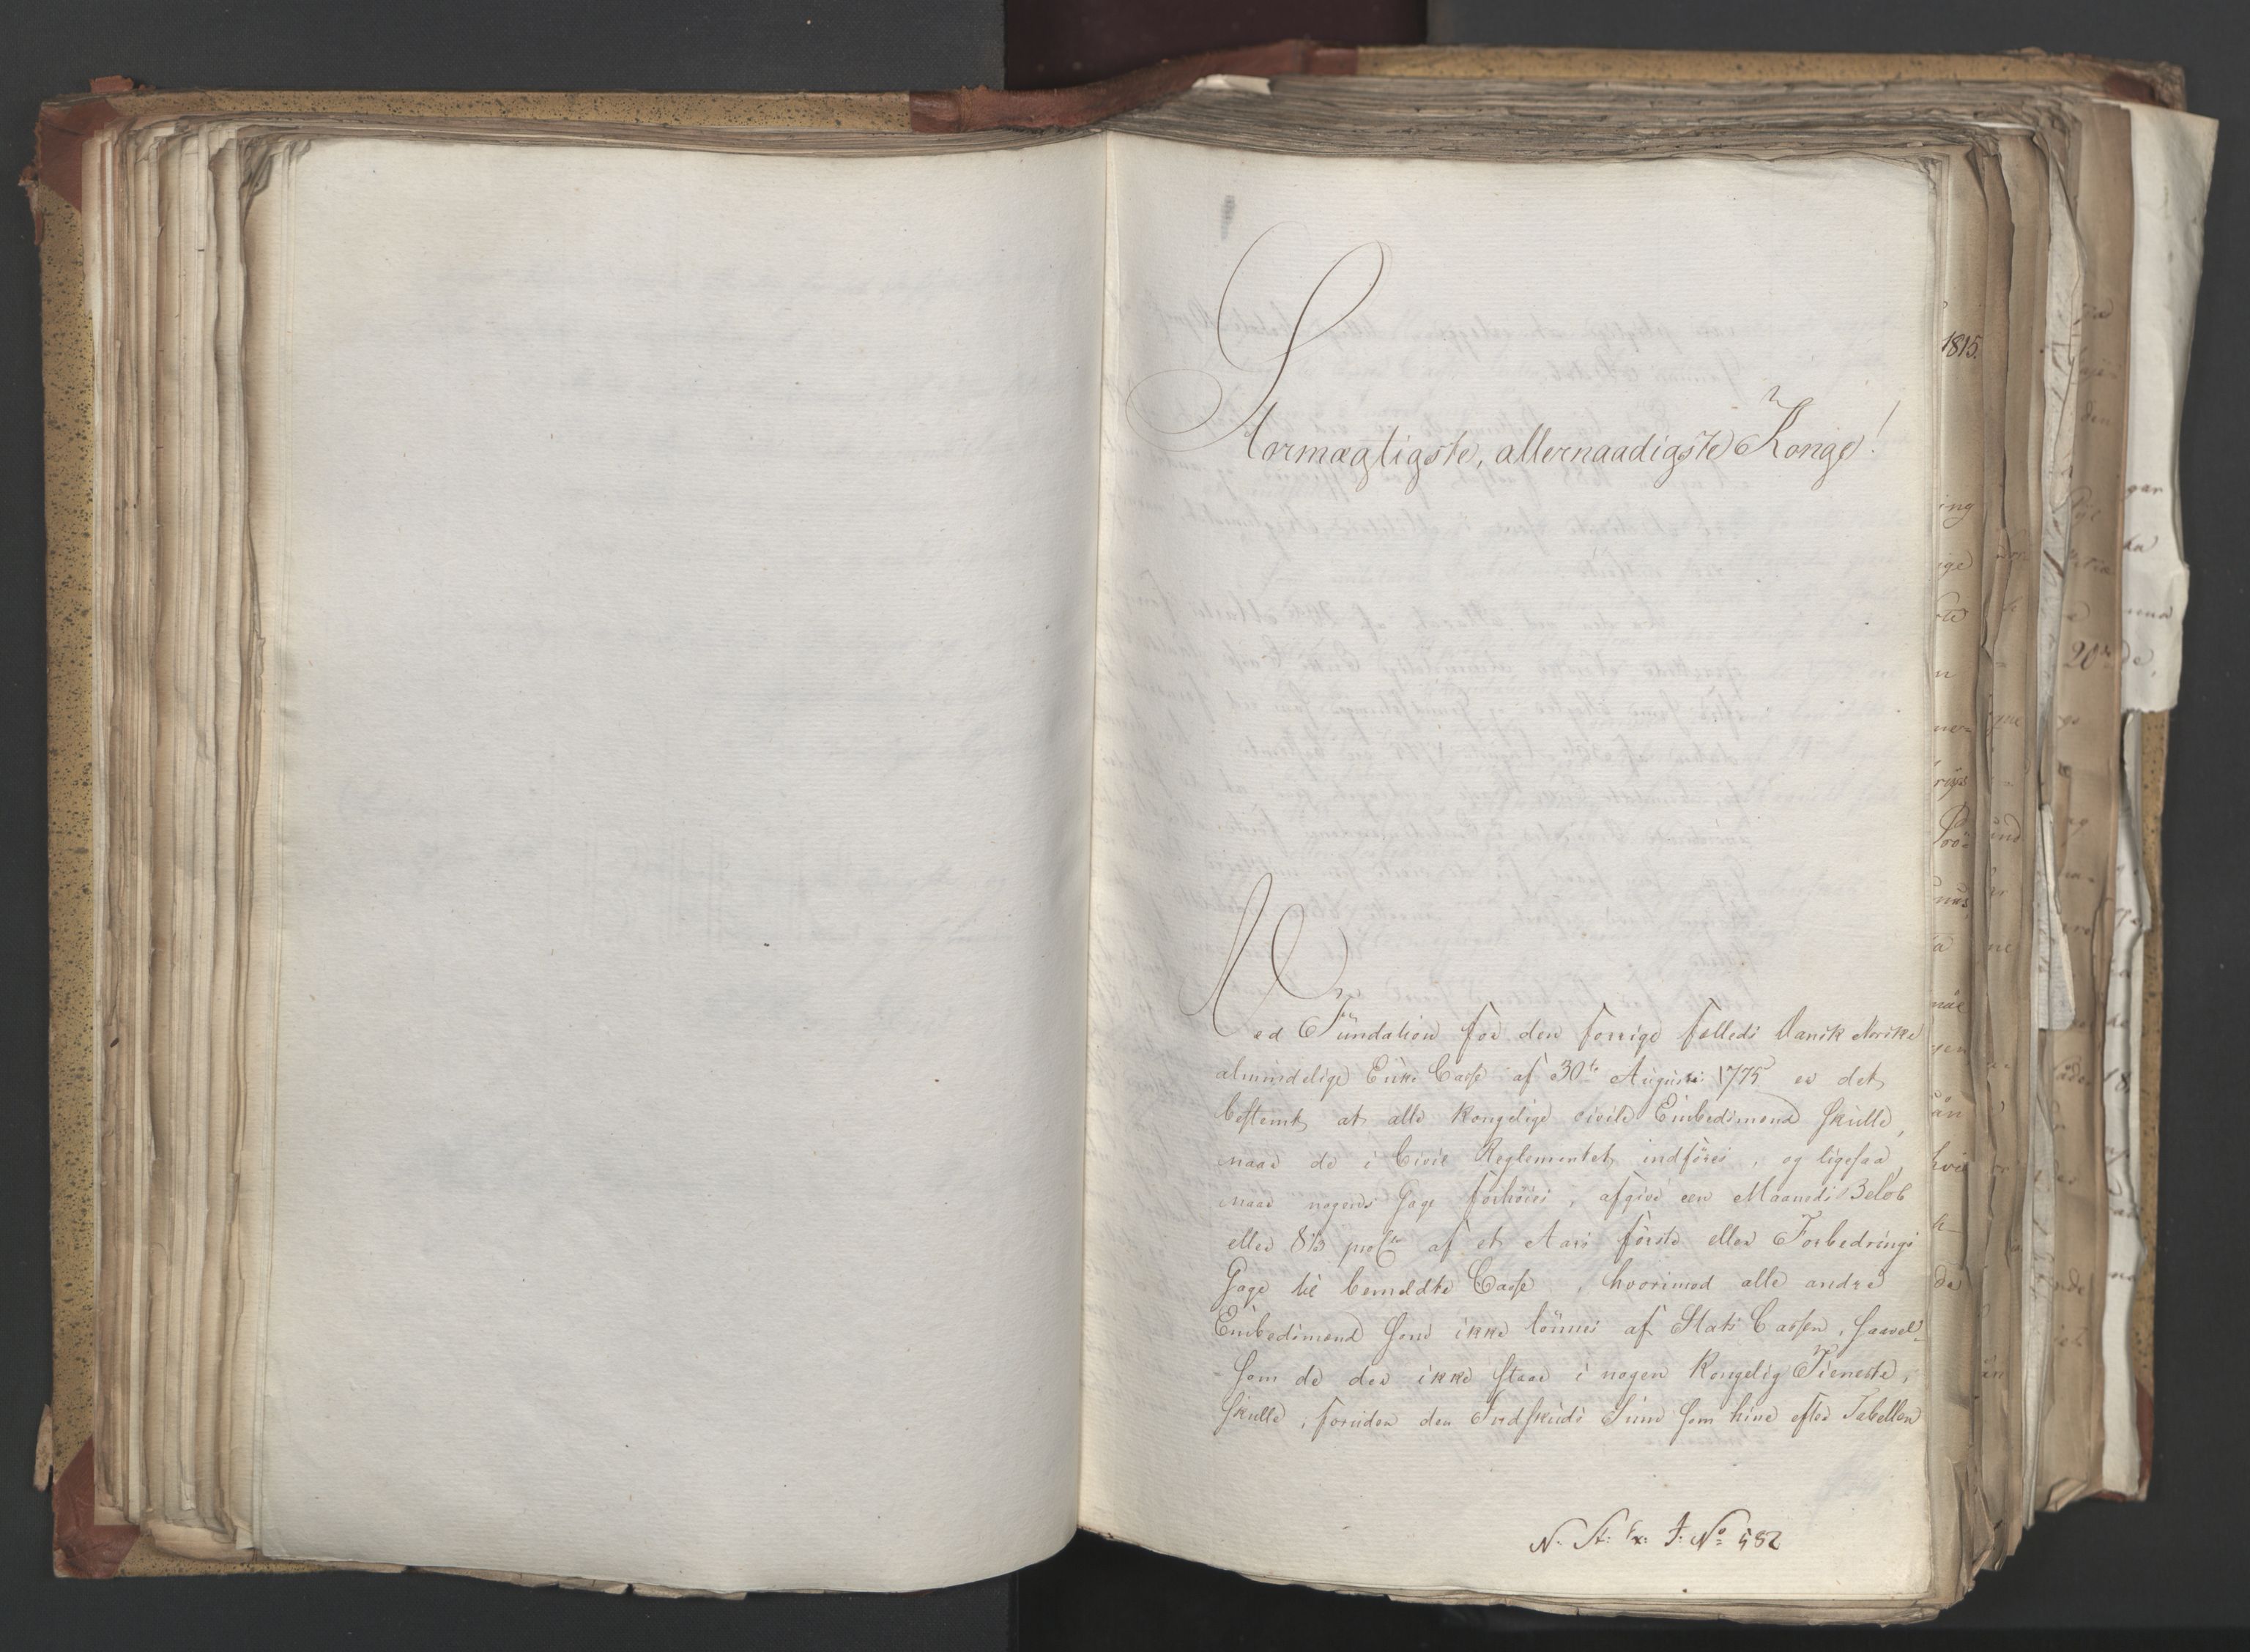 Stormægtigste, allernaadigste Konge!
Ved Fundation for den forrige fælleds Dansk Norske
almindelige Enke Casse af 30te Augusti 1775 er det
bestemt at alle kongelige civile Embedsmænd skulle,
naar de i Civil Reglementet indføres, og ligesaa,
naar nogens Gage forhøies, afgive een Maaneds Beløb
eller 8⅓ pro Ct af et Aars første eller Forbedrings
Gage til bemeldte Casse, hvorimod alle andre
Embedsmænd som ikke lønnes af Stats Cassen, saavel-
som de der ikke staae i nogen Kongelig Tieneste,
skulle, foruden den Indskuds Sum som hine efter Tabellen
N. St. Ex. J. No 582
1815.